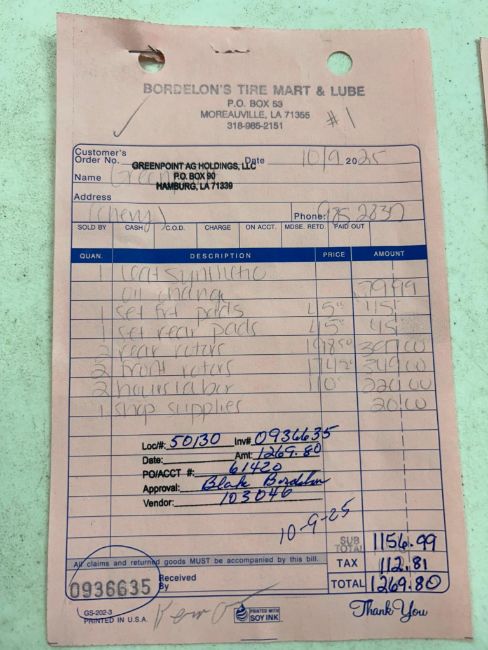 BORDELON'S TIRE MART & LUBE
P.O. BOX 53
MOREAUVILLE, LA 71355
318-985-2151
#1
Customer's
Order No. Date 10/9 2025
GREENPOINT AG HOLDINGS, LLC
P.O. BOX 90
HAMBURG, LA 71339
Name
Address
(Chevy) Phone: 985 2830
SOLD BY CASH C.O.D. CHARGE ON ACCT. MDSE. RETD. PAID OUT
QUAN. DESCRIPTION PRICE AMOUNT
1 synthetic
oil change 79 99
1 set frt pads 45
1 set rear pads 45
2 rear rotors
2 front rotors
2 hours labor 110 220 00
1 shop supplies 20 00
Loc/#: 50130 Inv# 0936635
Date: Amt: 1269.80
PO/ACCT #: 61420
Approval: Blake Bordelon
Vendor: 103046
10-9-25
SUB TOTAL 1156.99
All claims and returned goods MUST be accompanied by this bill.
TAX 112.81
0936635 Received By
TOTAL 1269.80
GS-202-3
PRINTED IN U.S.A.
PRINTED WITH SOY INK
Thank You